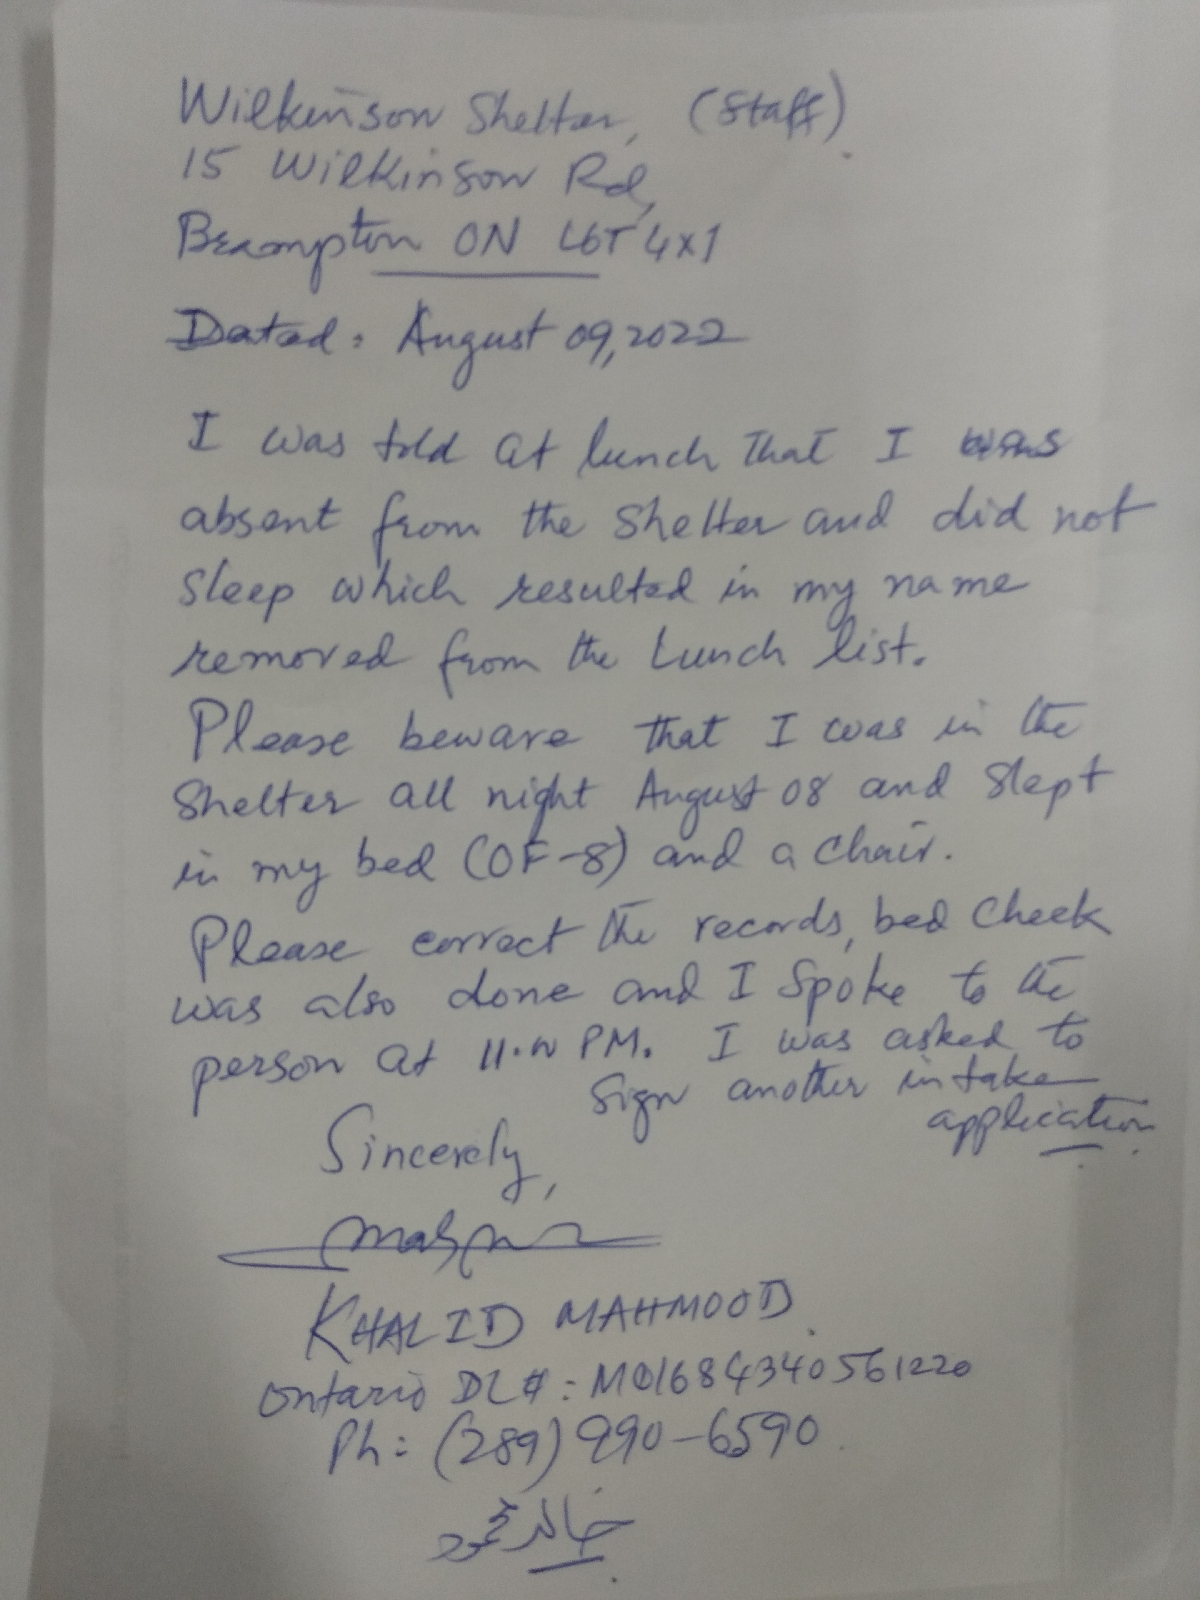 Wilkinson Shelter, (Staff)
15 Wilkinson Rd,
Brampton ON L6T 4X1
Dated: August 09, 2022
I was told at lunch that I was
absent from the shelter and did not
sleep which resulted in my name
removed from the Lunch list.
Please beware that I was in the
Shelter all night August 08 and slept
in my bed (OF-8) and a chair.
Please correct the records, bed check
was also done and I spoke to the
person at PM. I was asked to
sign another intake
application.
Sincerely,
KHALID MAHMOOD
Ontario DL#: M01684340561220
Ph: (289) 990-6590
خالد محمود